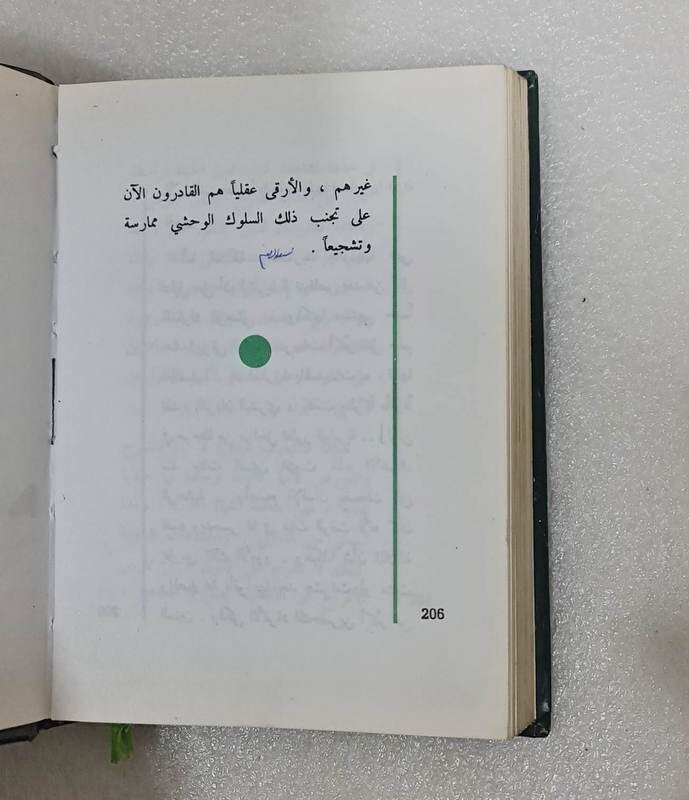 غيرهم ، والأرقى عقلياً هم القادرون الآن
على تجنب ذلك السلوك الوحشي ممارسة
وتشجيعاً .
206